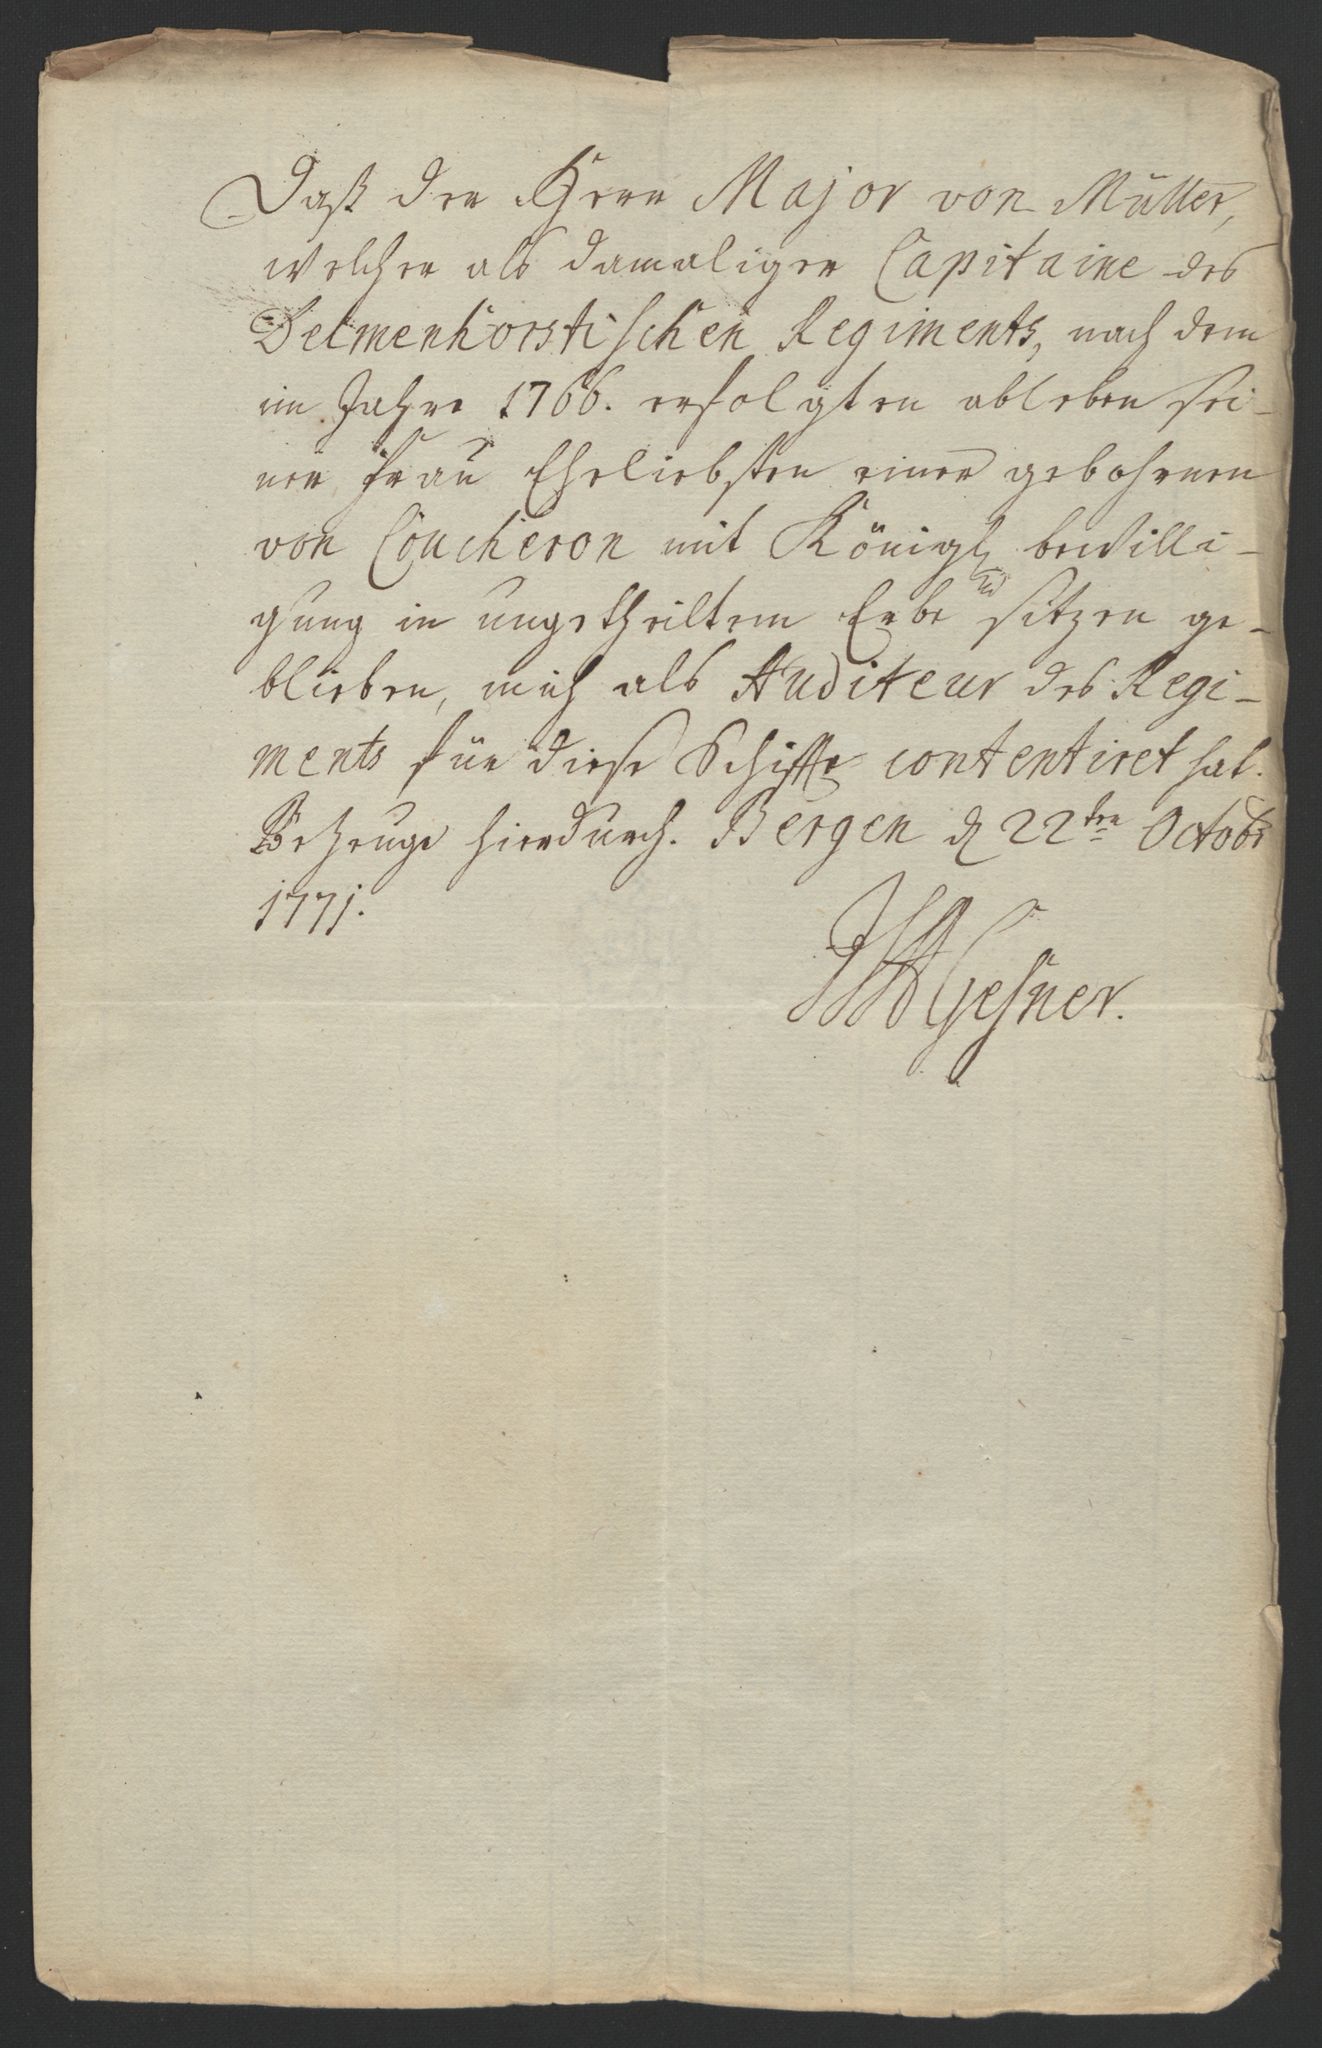 Daß der Herr Major von Müller,
welcher als damaliger Capitaine des
Delmenhorstischen Regiments, nach dem
im Jahre 1766. erfolgten ableben sei-
ner Frau Eheliebsten einer gebohrnen
von Coucheron mit Königl bewilli-
gung in ungetheiltem Erbe sitzen ge-
blieben, mich als Auditeur des Regi-
ments für diese Schiffte contentiret hat.
Bezeuge hierdurch. Bergen d 22ten Octobr
1771.
Gesner.